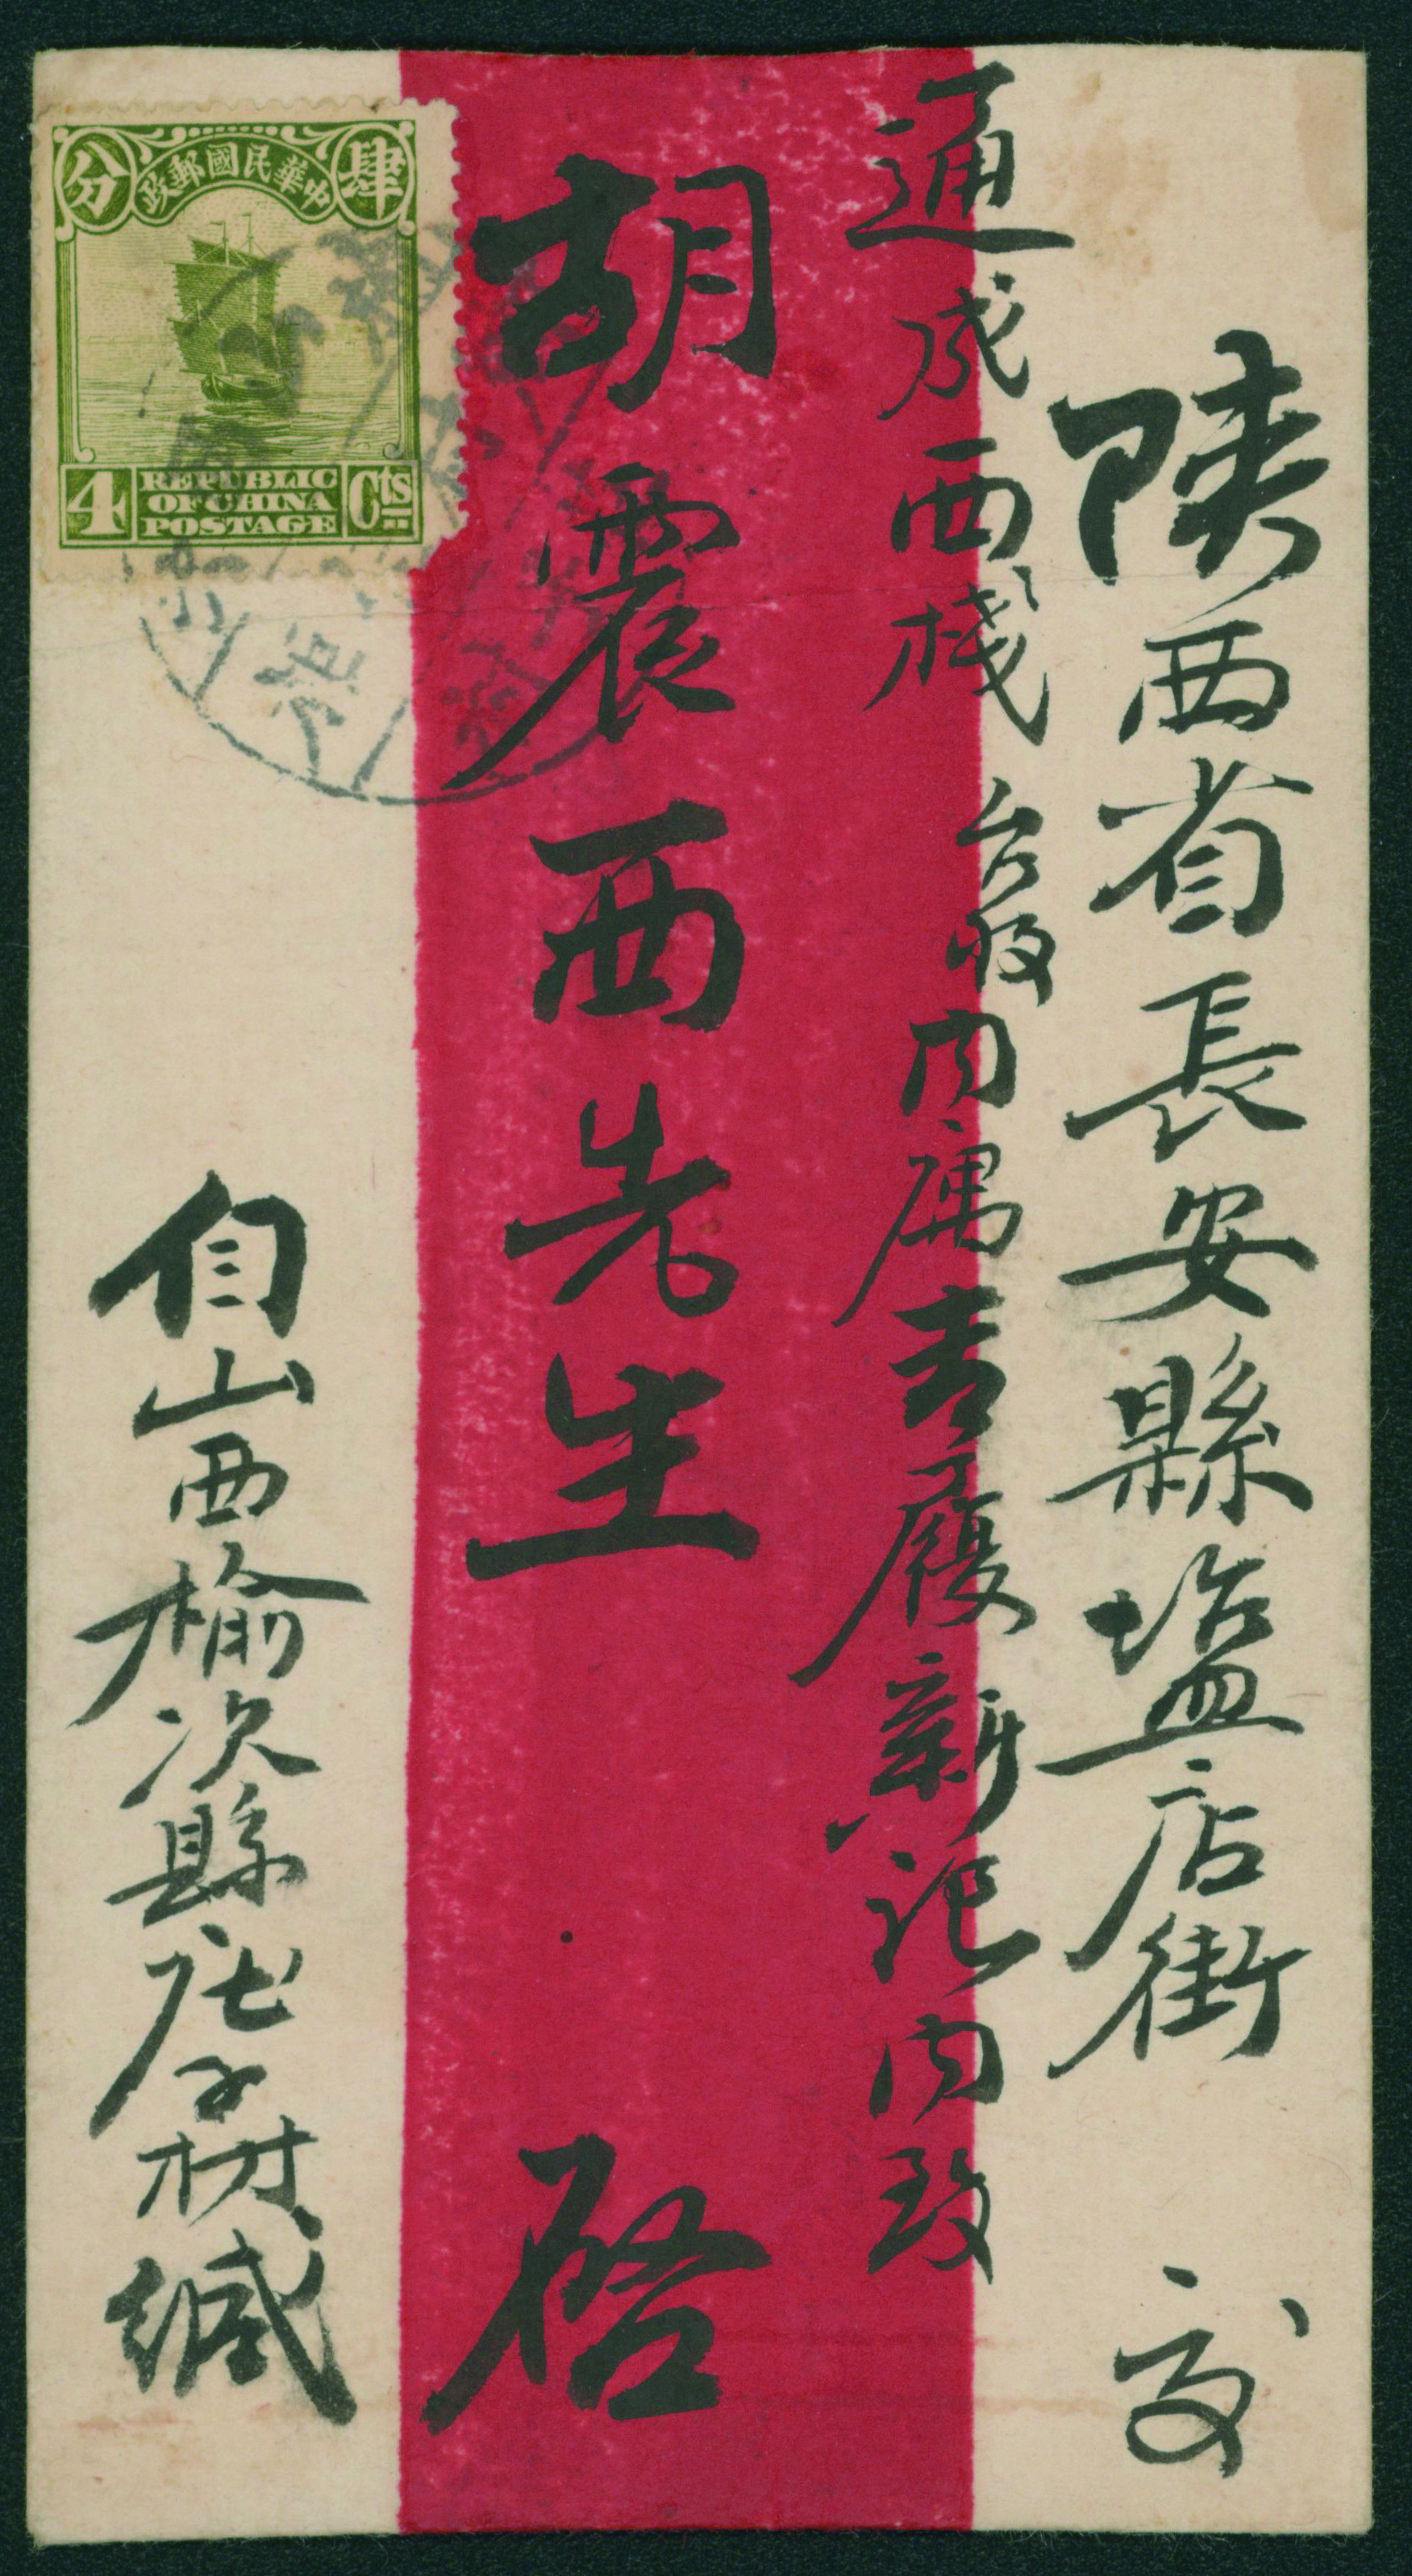 陝西省長安縣塩店街 交
通成西棧 台收內属吉履新記內致
胡震西先生 啓
自山西榆次縣庄子村緘
中華民國郵政
肆
分
4
REPUBLIC
OF CHINA
POSTAGE
Cts